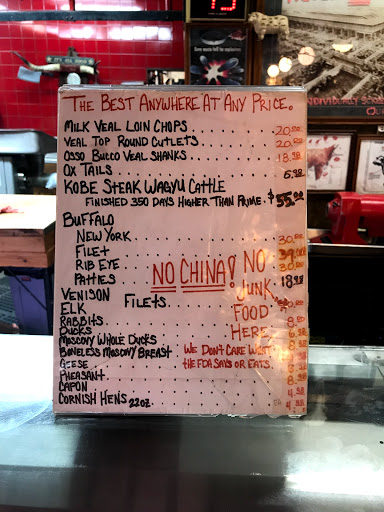 IT'S ALL
THE BEST ANYWHERE AT ANY PRICE.
MILK VEAL LOIN CHOPS 20.00
VEAL TOP ROUND CUTLETS 20.00
OSSO BUCCO VEAL SHANKS 18.98
OX TAILS 6.98
KOBE STEAK WAGYU CATTLE
FINISHED 350 DAYS HIGHER THAN PRIME. $55.00
BUFFALO
NEW YORK 30.00
FILET 39.00
RIB EYE 30.00
PATTIES 18.98
NO CHINA! NO JUNK FOOD HERE
VENISON FILETS
ELK
RABBITS
DUCKS
MUSCOVY WHOLE DUCKS
BONELESS MUSCOVY BREAST
GEESE
PHEASANT
CAPON 4.98
CORNISH HENS 22OZ. 4.98
WE DON'T CARE WHAT
THE FDA SAYS OR EATS.
INDIVIDUALLY